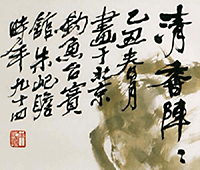 清香陣〻
乙丑春月
畫于北京
釣魚台賓
館朱屺瞻
時年九十四